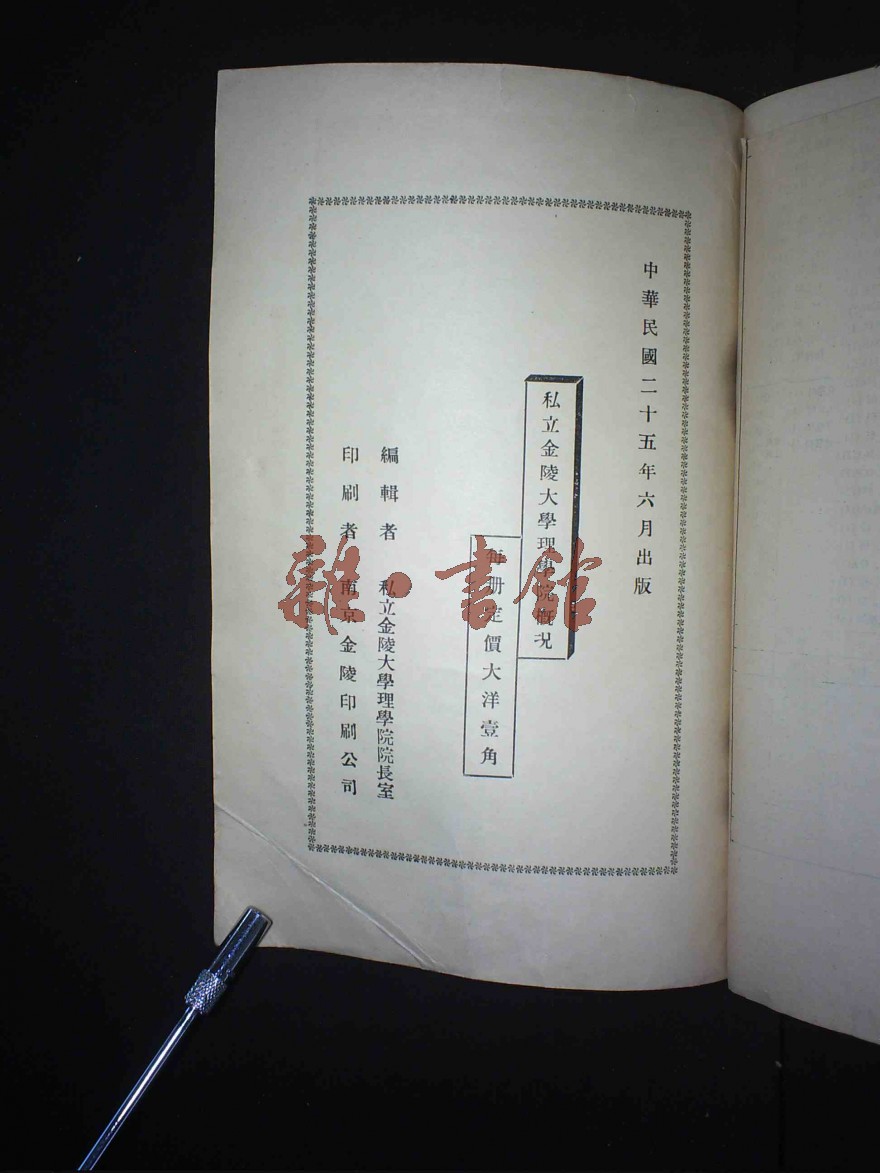 中華民國二十五年六月出版
私立金陵大學理學院概況
每册定價大洋壹角
編輯者 私立金陵大學理學院院長室
印刷者 南京金陵印刷公司
雜·書館